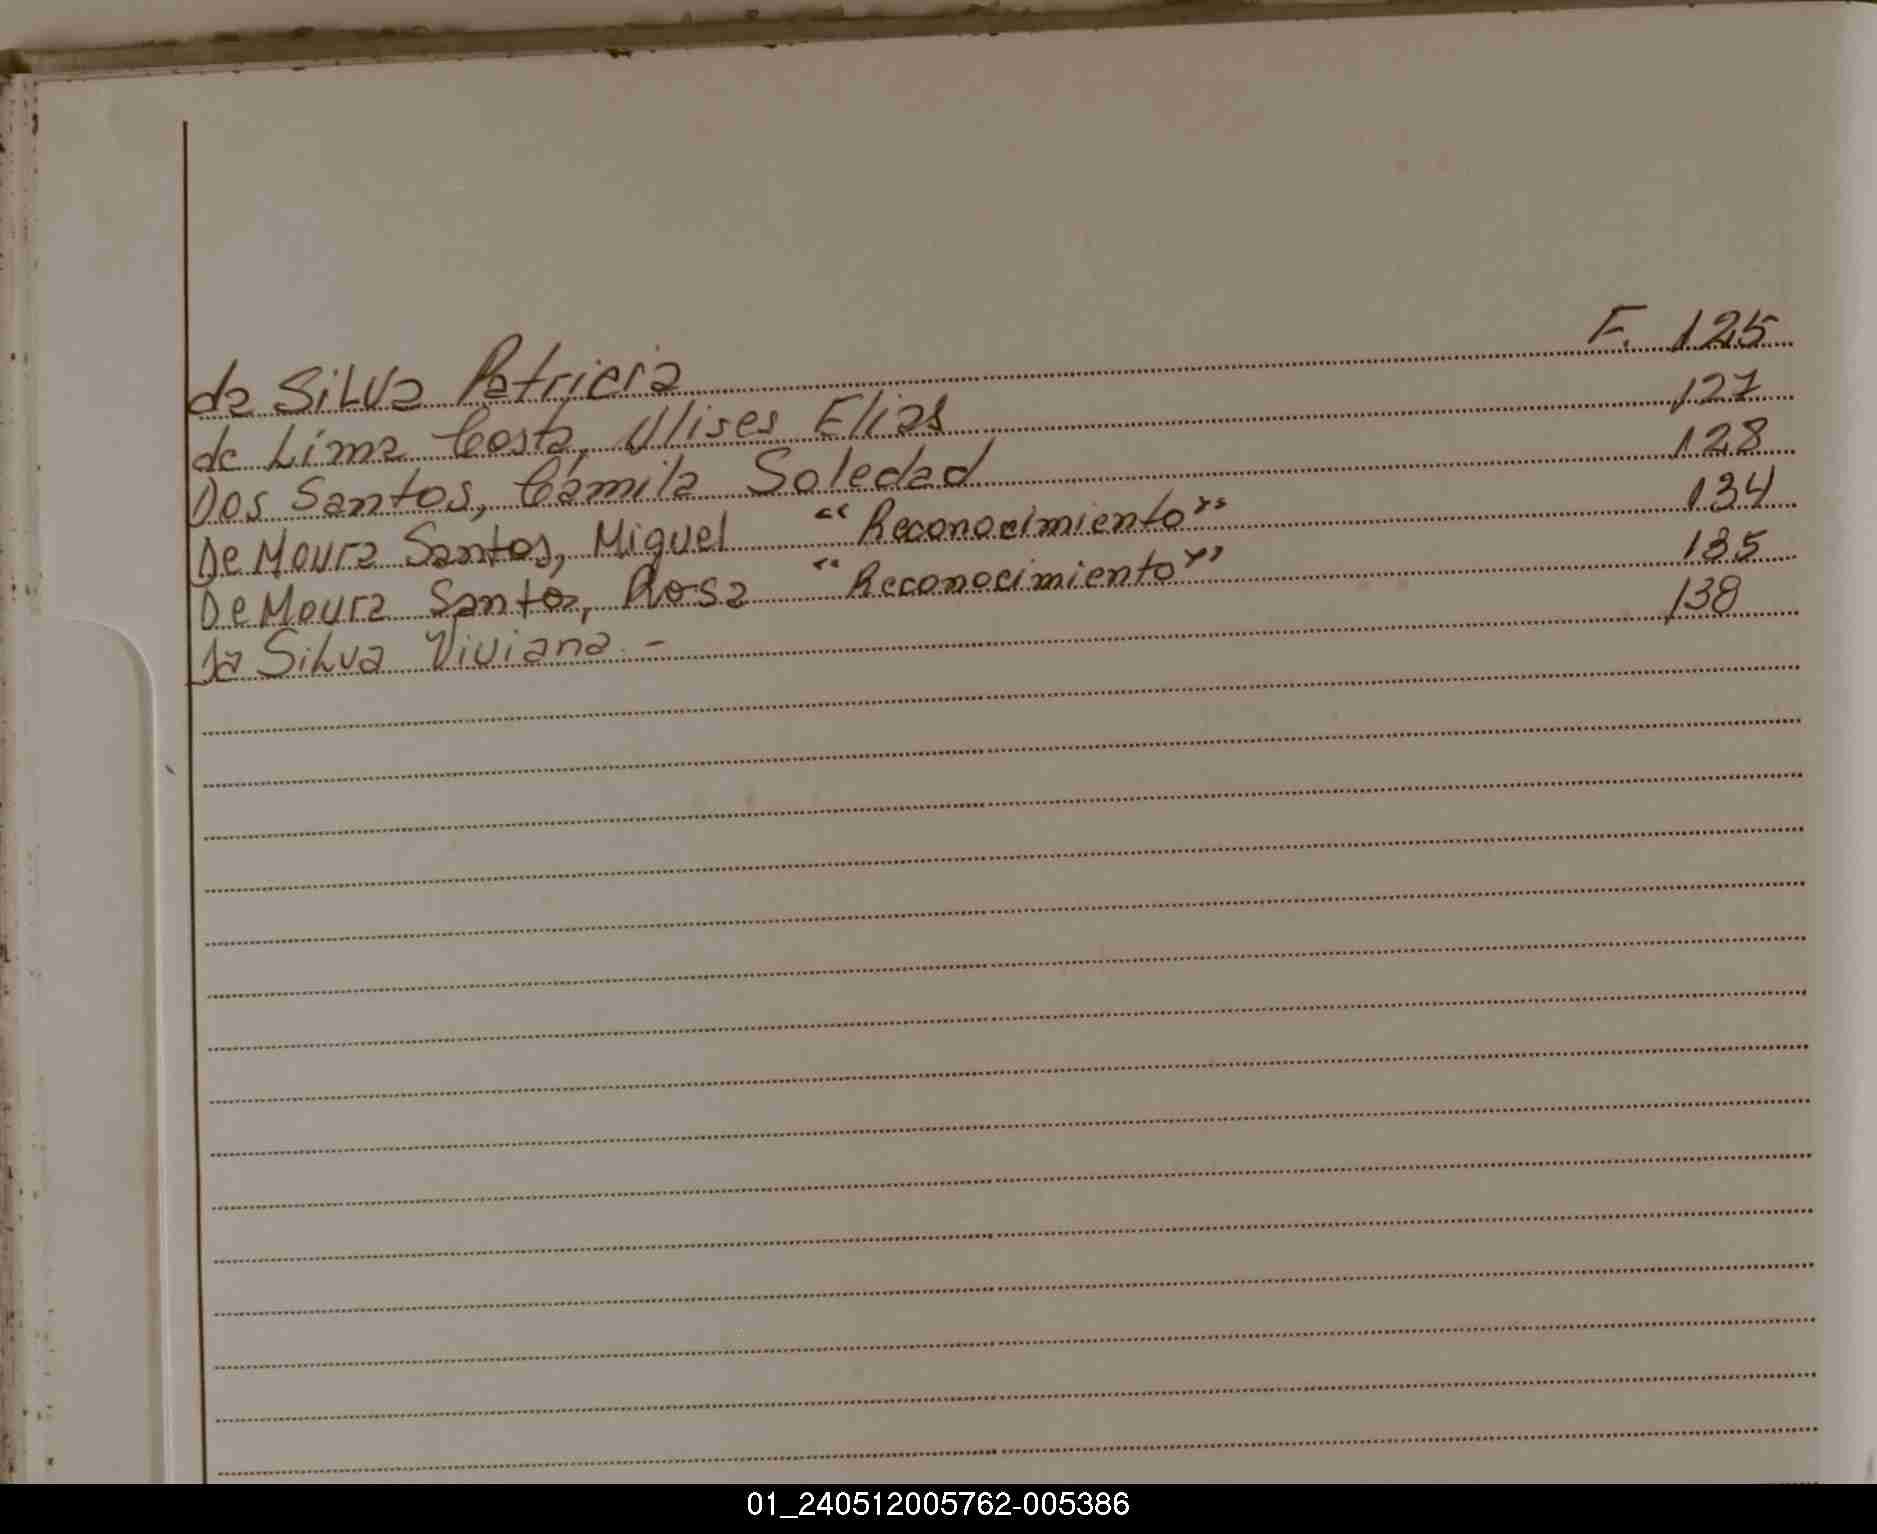 da Silva Patricia F. 125
de Lima Costa, Ulises Elias 127
Dos Santos, Cámila Soledad 128
De Moura Santos, Miguel "Reconocimiento" 134
De Moura Santos, Rosa "Reconocimiento" 135
da Silva Viviana. - 138
01_240512005762-005386